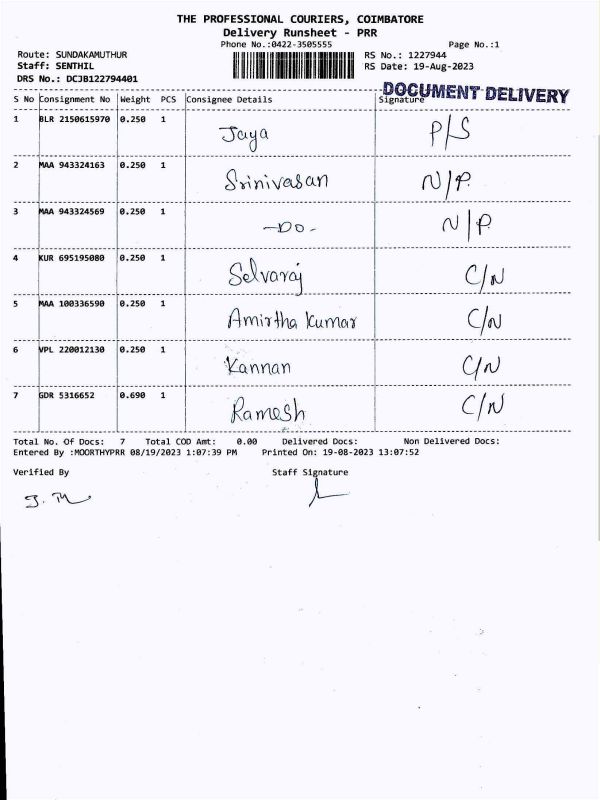 THE PROFESSIONAL COURIERS, COIMBATORE
Delivery Runsheet - PRR
Phone No.:0422-3505555 Page No.:1
Route: SUNDAKAMUTHUR RS No.: 1227944
Staff: SENTHIL RS Date: 19-Aug-2023
DRS No.: DCJB122794401
DOCUMENT DELIVERY
S No Consignment No Weight PCS Consignee Details Signature
1 BLR 2150615970 0.250 1 Jaya P/S
2 MAA 943324163 0.250 1 Srinivasan N/P.
3 MAA 943324569 0.250 1 -DO- N/P.
4 KUR 695195080 0.250 1 Selvaraj C/N
5 MAA 100336590 0.250 1 Amirtha Kumar C/N
6 VPL 220012130 0.250 1 Kannan C/N
7 GDR 5316652 0.690 1 Ramesh C/N
Total No. Of Docs: 7 Total COD Amt: 0.00 Delivered Docs: Non Delivered Docs:
Entered By :MOORTHYPRR 08/19/2023 1:07:39 PM Printed On: 19-08-2023 13:07:52
Verified By Staff Signature